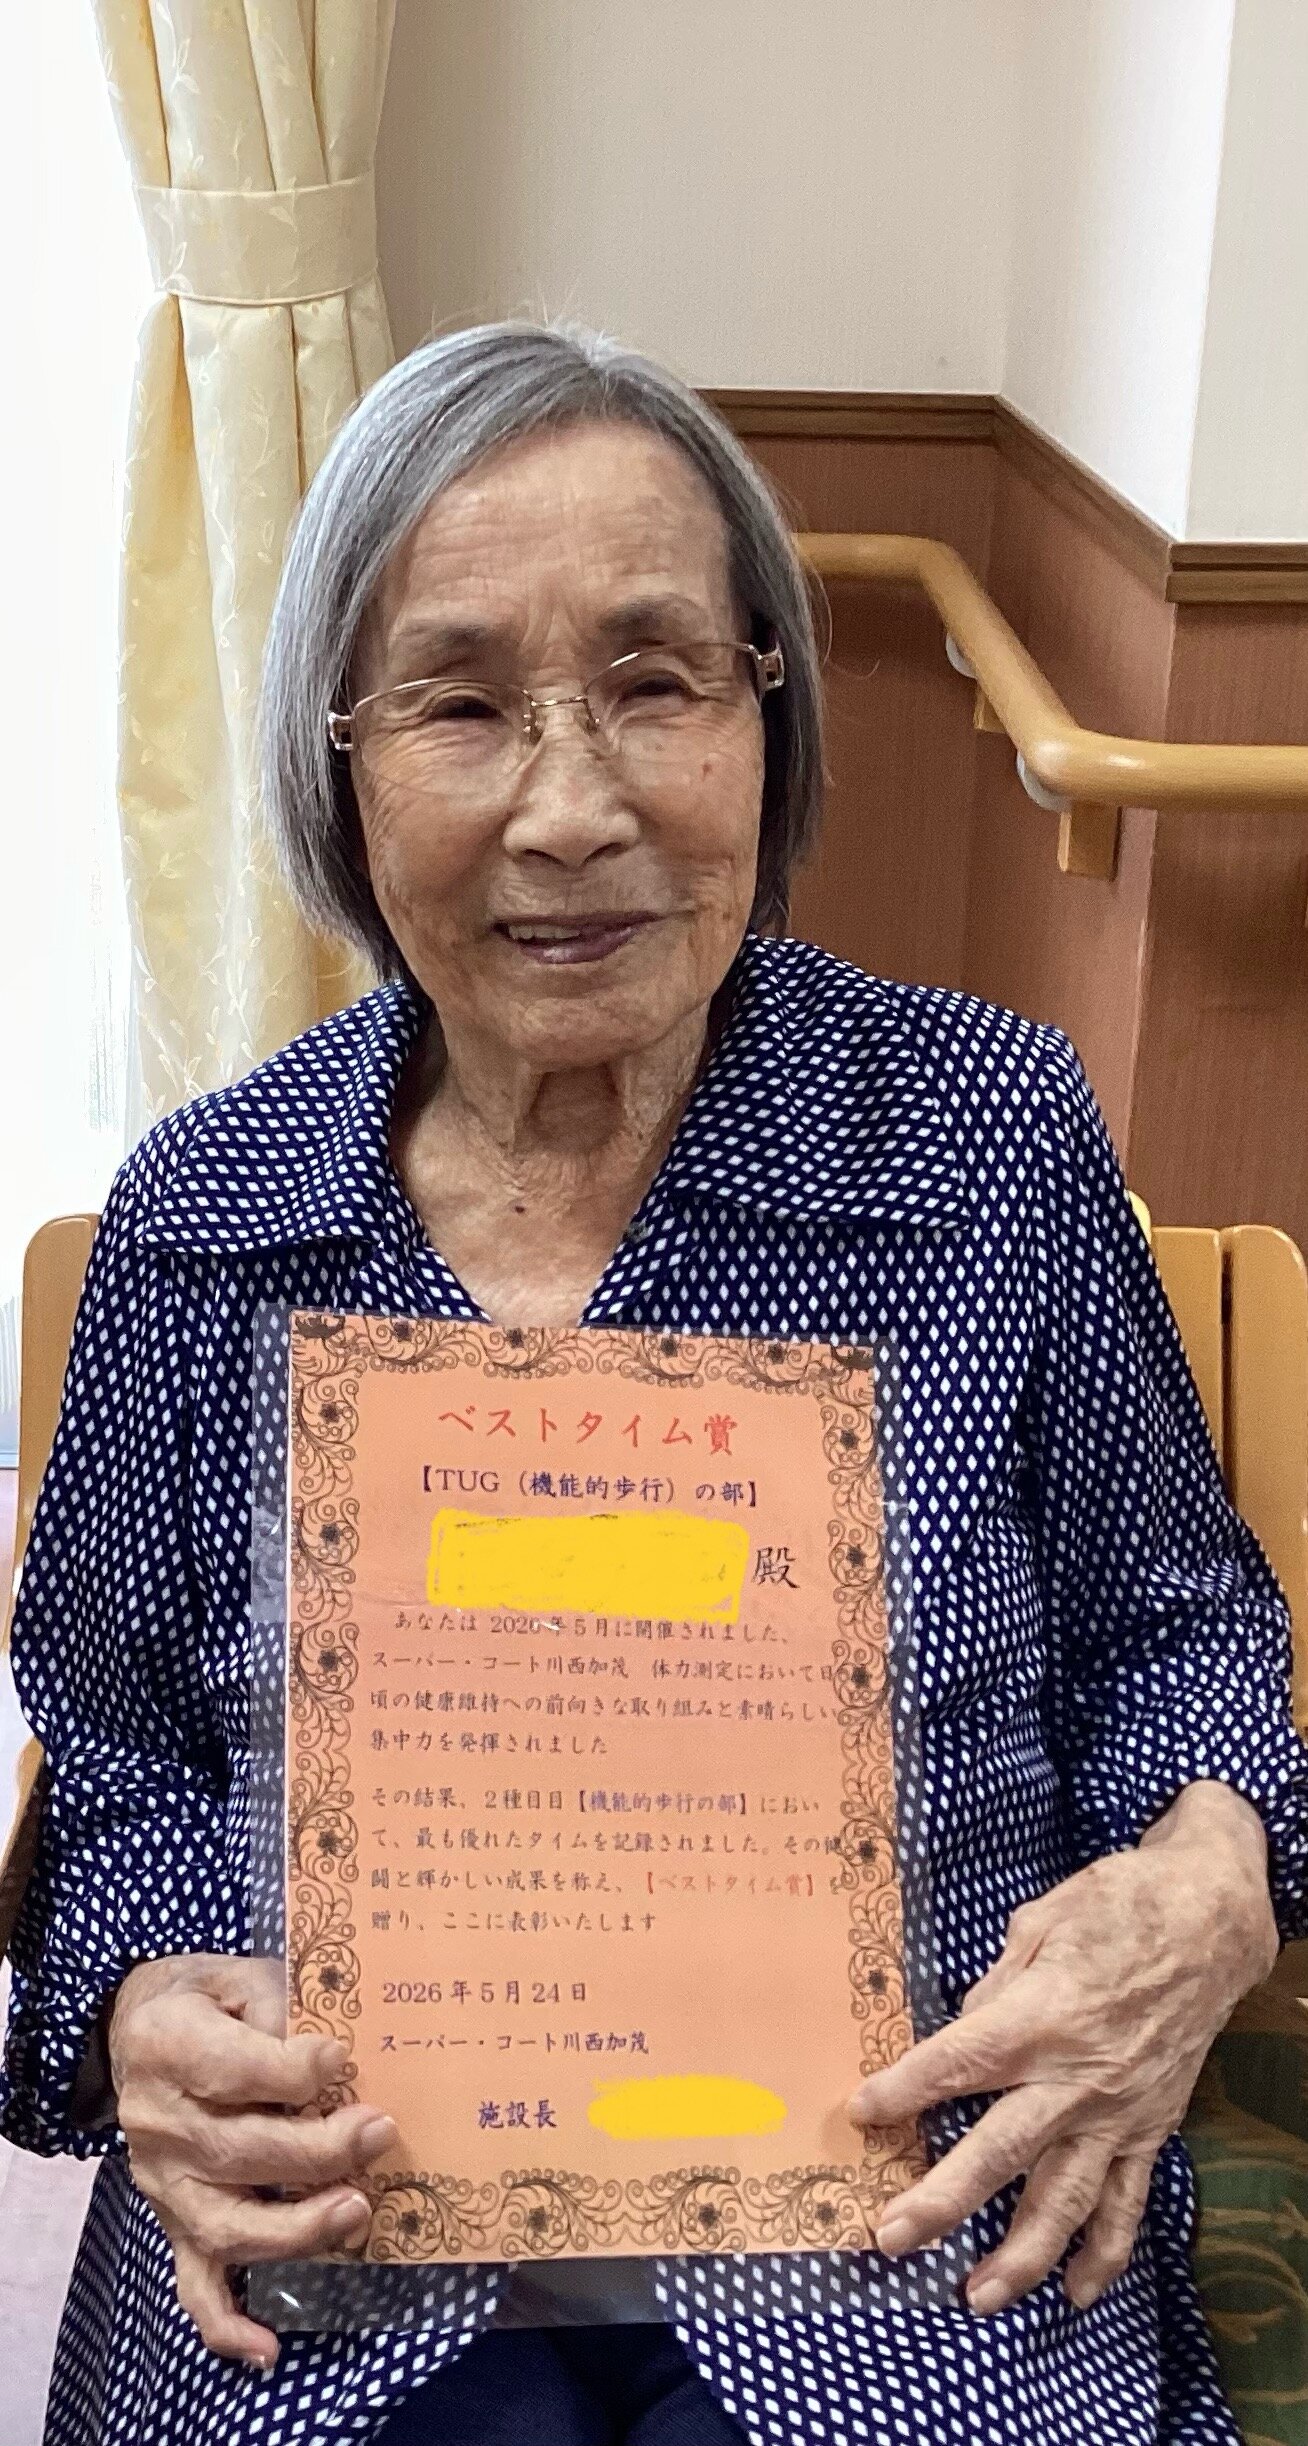 ベストタイム賞
【TUG（機能的歩行）の部】
殿
あなたは 2026年5月に開催されました、
スーパー・コート川西加茂　体力測定において日
頃の健康維持への前向きな取り組みと素晴らしい
集中力を発揮されました
その結果、2種目目【機能的歩行の部】におい
て、最も優れたタイムを記録されました。その健
闘と輝かしい成果を称え、【ベストタイム賞】を
贈り、ここに表彰いたします
2026年5月24日
スーパー・コート川西加茂
施設長